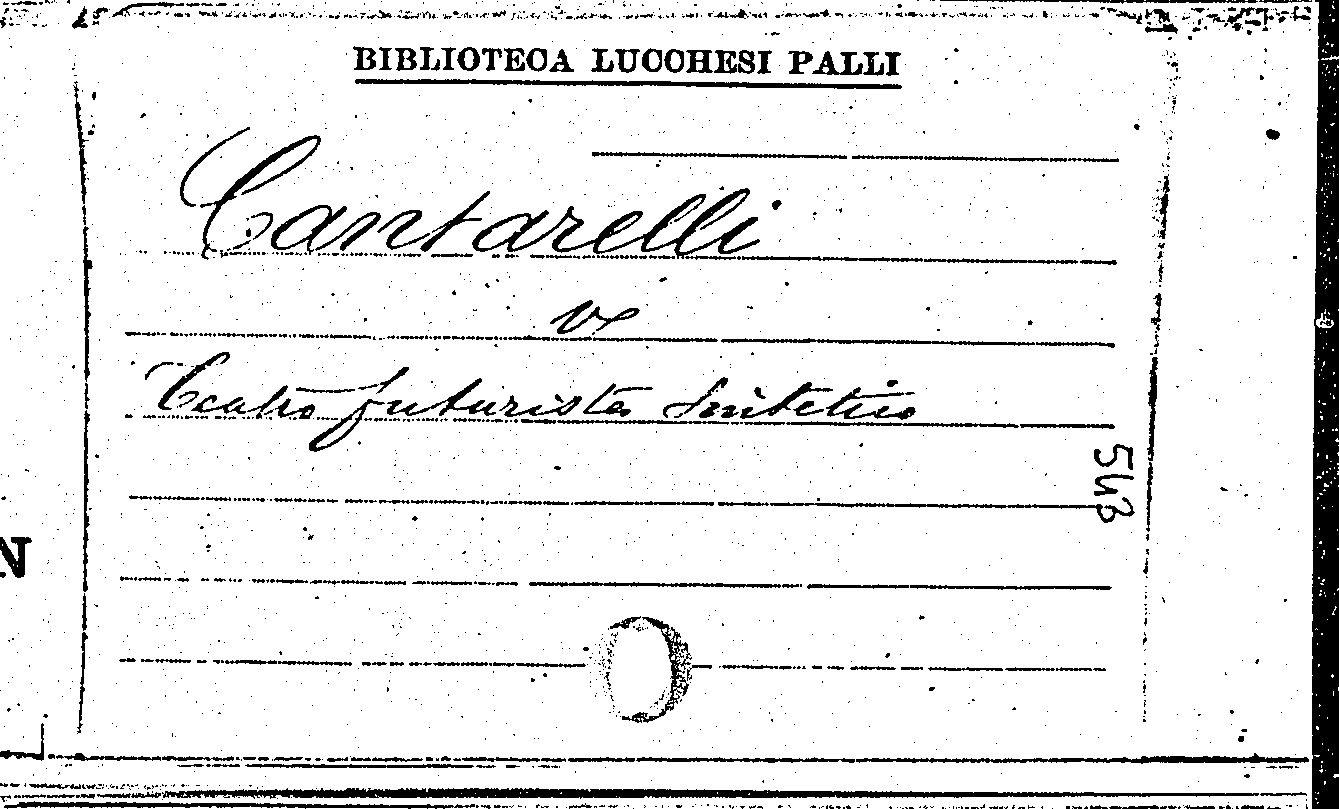 BIBLIOTECA LUCCHESI PALLI
Cantarelli
v
Teatro futurista sintetico
543
N